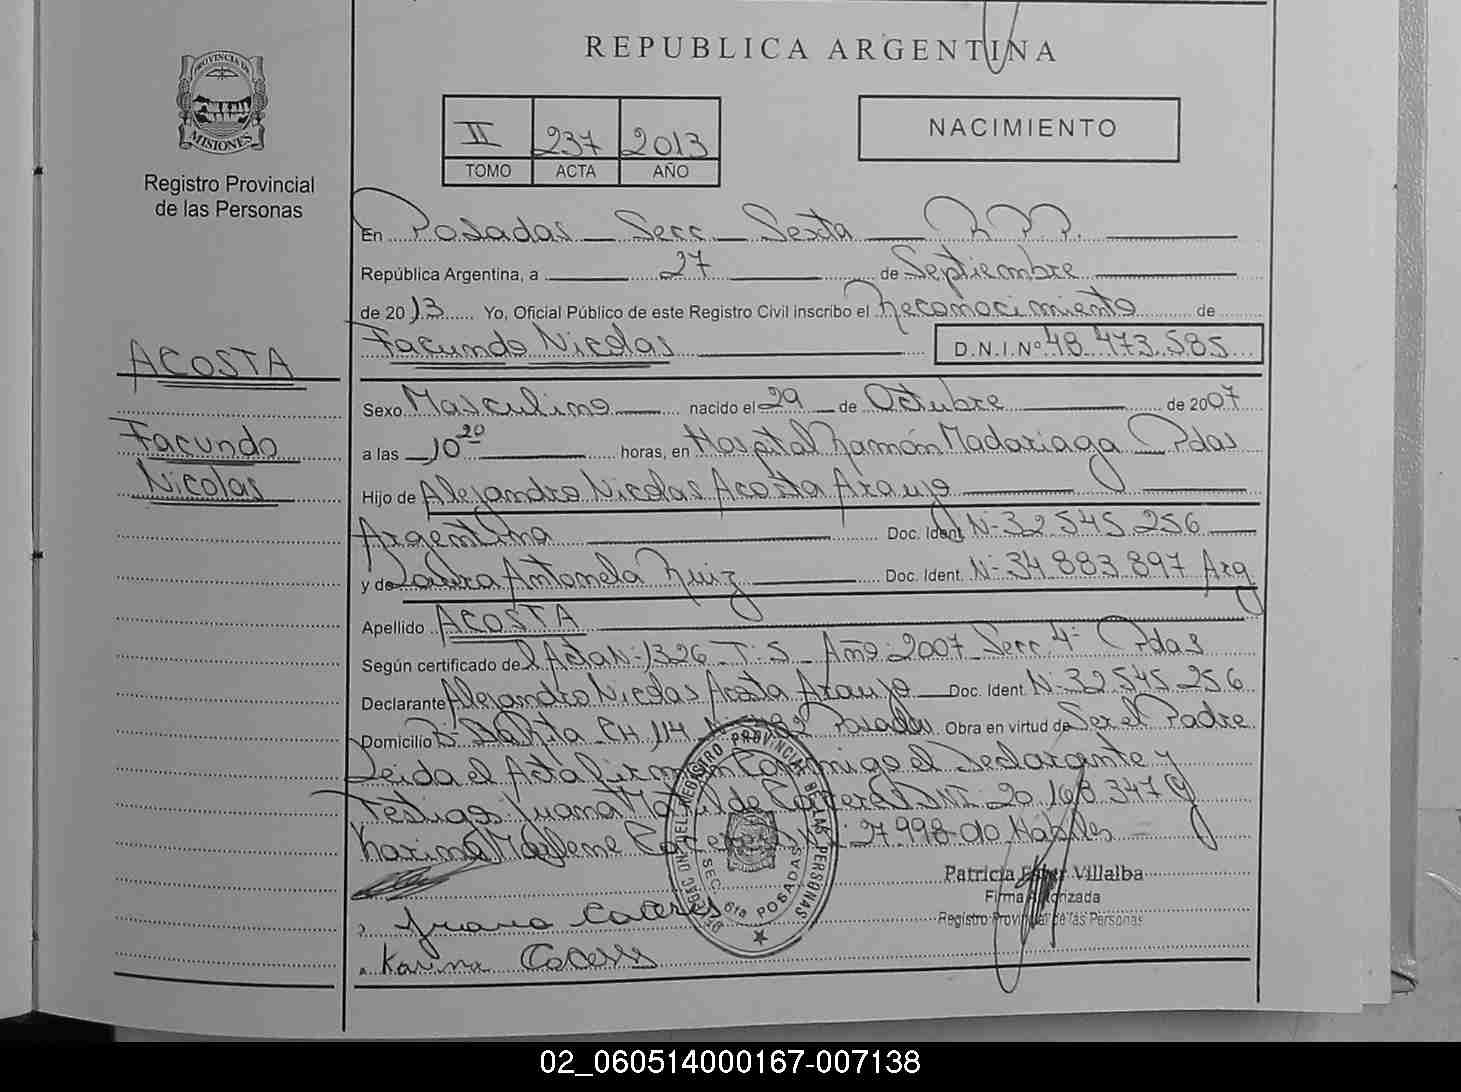 REPUBLICA ARGENTINA
PROVINCIA DE
MISIONES
Registro Provincial
de las Personas
II 237 2013
TOMO ACTA AÑO
NACIMIENTO
En Posadas Secc. Sexta R.P.P.
República Argentina, a 27 de Septiembre
de 2013 Yo, Oficial Público de este Registro Civil inscribo el Reconocimiento de
Facundo Nicolas D.N.I.Nº 48.473.585
ACOSTA
Facundo
Nicolas
Sexo Masculino nacido el 29 de Octubre de 2007
a las 10 20 horas, en Hospital Ramón Madariaga Pdas
Hijo de Alejandro Nicolas Acosta Araujo
Argentina Doc. Ident. Nº 32.545.256
y de Laura Antonela Ruiz Doc. Ident. Nº 34.883.897 Arg
Apellido ACOSTA
Según certificado del Acta Nº 1326 T: 5 Año: 2007 Secc 4ª Pdas
Declarante Alejandro Nicolas Acosta Araujo Doc. Ident. Nº 32.545.256
Domicilio Bº Sta Rita CH 114 Posadas Obra en virtud de Ser el Padre
Leida el Acta firman Conmigo el Declarante y
Testigos Juana DNI: 20.168.347 y
Karina Marlene 27.998.010 Hábiles
Patricia Ester Villalba
Firma Autorizada
Registro Provincial de las Personas
Juana Caceres
Karina Caceres
REGISTRO PROVINCIAL DE LAS PERSONAS
SEC. 6ta POSADAS
02_060514000167-007138